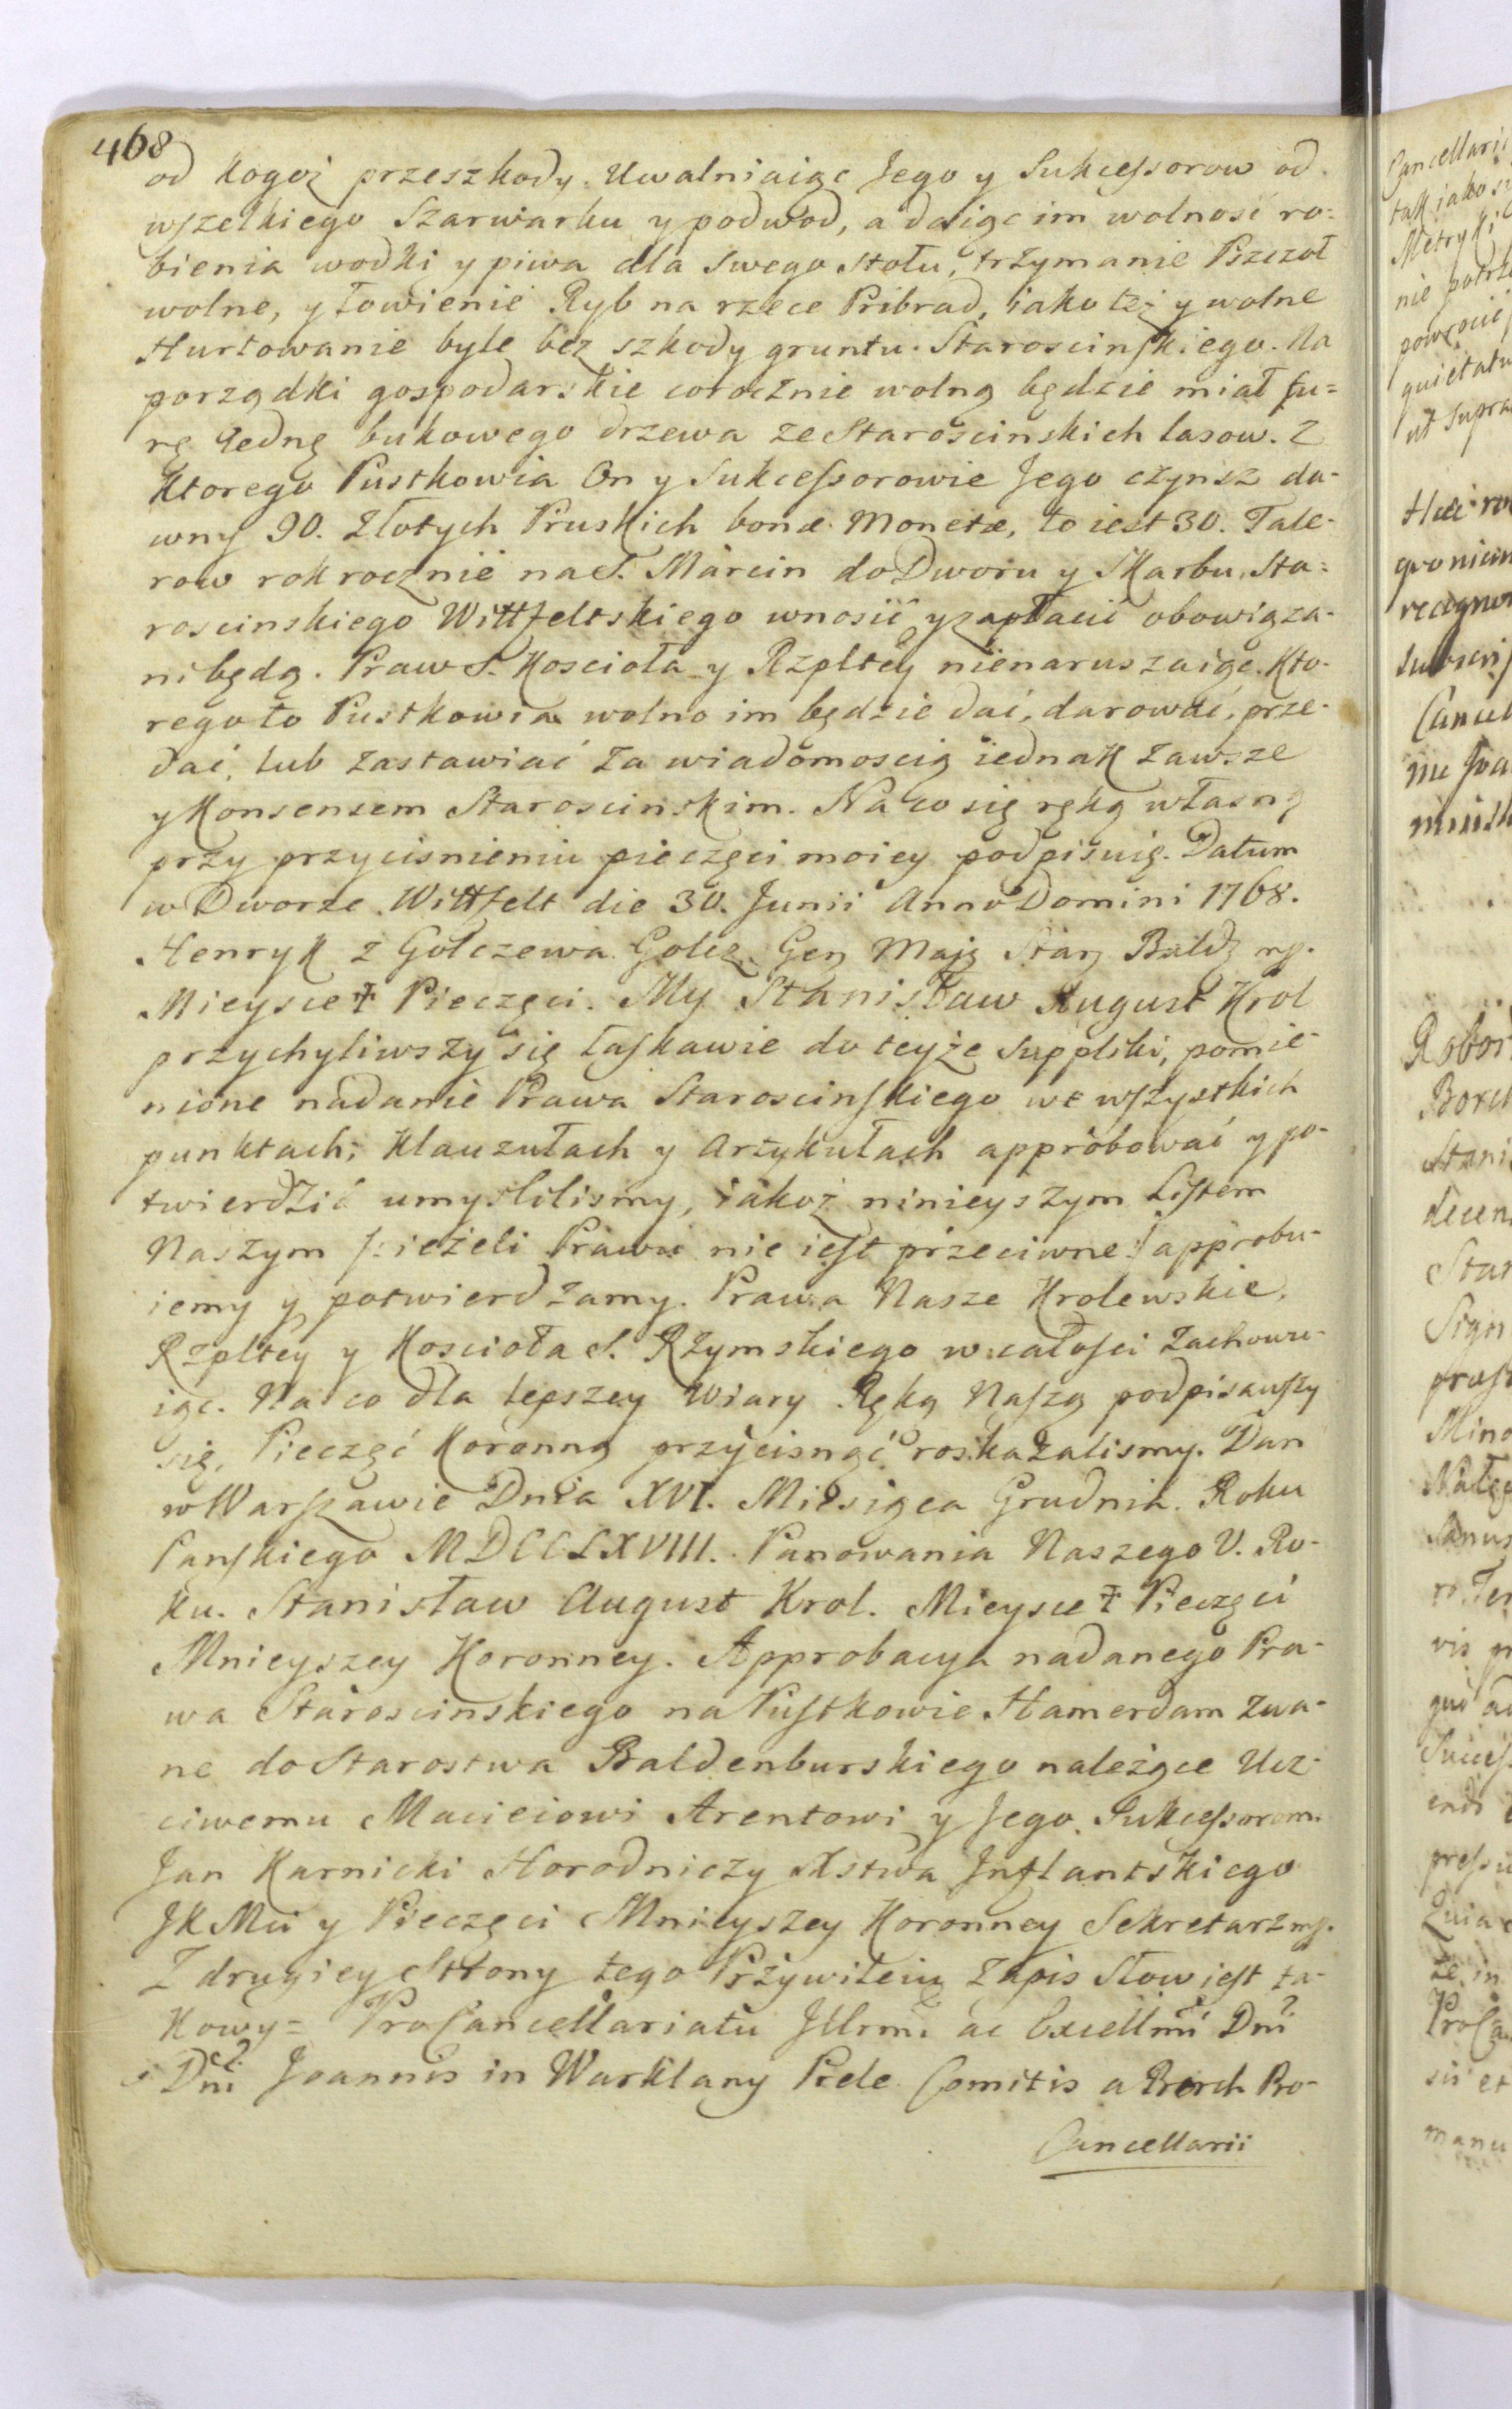 468
od kogoż przeszkody. Uwalniaiąc Jego y Sukcessorow od
wszelkiego Szarwarku y podwod, a daiąc im wolnosć ro=
bienia wodki y piwa dla swego stołu, trzymanie Pszczoł
wolne, y łowienie Ryb na rzece Pribrad, iako też y wolne
Hurtowanie byle bez szkody gruntu Staroscinskiego. Na
porządki gospodarskie corocznie wolną będzie miał fu=
rę iedną bukowego drzewa ze Staroscinskich lasow. Z
Ktorego Pustkowia On y Sukcessorowie Jego czynsz da-
wny 90. Złotych Pruskich bonæ Monetæ, to iest 30. Tale-
row rok rocznie na S. Marcin do Dworu y Skarbu Sta=
roscinskiego Wittfeltskiego wnosić y zapłacić obowiąza-
ni będą. Praw S. Koscioła y Rzpltey nienaruszaiąc. Kto-
rego to Pustkowia wolno im będzie dać, darować, prze-
dać, lub zastawiać za wiadomoscią iednak zawsze
y Konsensem Staroscinskim. Na co się ręką własną
przy przycisnieniu pieczęci moiey podpisuię. Datum
w Dworze Wittfelt die 30. Junii Anno Domini 1768.
Henryk z Golczewa Golcz Gen Maj Star Bald mp.
Mieysce ✝ Pieczęci. My Stanisław August Krol
przychyliwszy się łaskawie do teyże Supplski, pomie-
nione nadanie Prawa Staroscinskiego we wszystkich
punktach, Klauzułach y Artykułach approbować y po-
twierdzić umyslilismy, iakoż ninieyszym Listem
Naszym /: ieżeli Prawu nie iest przeciwne :/ approbu-
iemy y potwierdzamy. Prawa Nasze Krolewskie,
Rzpltey y Koscioła S. Rzymskiego w całosci zachowu-
iąc. Na co dla lepszey Wiary Ręką Naszą podpisawszy
się, Pieczęć Koronną przycisnąć roskazalismy. Dan
w Warszawie Dnia XVI. Miesiąca Grudnia. Roku
Panskiego MDCCLXVIII. Panowania Naszego V. Ro-
ku. Stanisław August Krol. Mieysce ✝ Pieczęci
Mnieyszey Koronney. Approbacya nadanego Pra-
wa Staroscinskiego na Pustkowie Hamerdam zwa-
ne do Starostwa Baldenburskiego należące Ucz-
ciwemu Macieiowi Arentowi y Jego Sukcessorom.
Jan Karnicki Horodniczy Xstwa Inflantskiego
JKMci y Pieczęci Mnieyszey Koronney Sekretarz mp.
Z drugiey Strony tego Przywileiu Zapis Słow iest ta-
kowy= ProCancellariatu Illrmi ac Excellmi Dni
Dni Joannis in Warklany Prele Comitis a Borch Pro-
Cancellarii